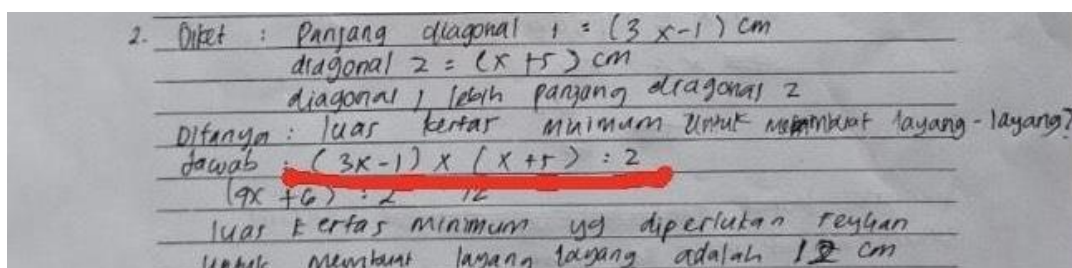 2. Diket : Panjang diagonal 1 = (3x-1) cm
diagonal 2 = (x+5) cm
diagonal 1 lebih panjang diagonal 2
Ditanya : luas kertas minimum untuk membuat layang-layang?
Jawab : (3x-1) x (x+5) : 2
(9x+6) : 2 12
luas kertas minimum yg diperlukan reyhan
untuk membuat layang layang adalah 12 cm